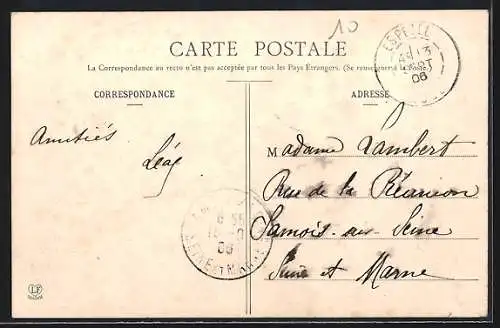 10
CARTE POSTALE
La Correspondance au recto n'est pas acceptée par tous les Pays Étrangers. (Se renseigner à la Poste.)
CORRESPONDANCE
ADRESSE
ESPELE
13
06
Amitiés
Léa
Madame Lambert
Rue de la Réunion
Samois-sur-Seine
Seine et Marne
06
SEINE ET MARNE